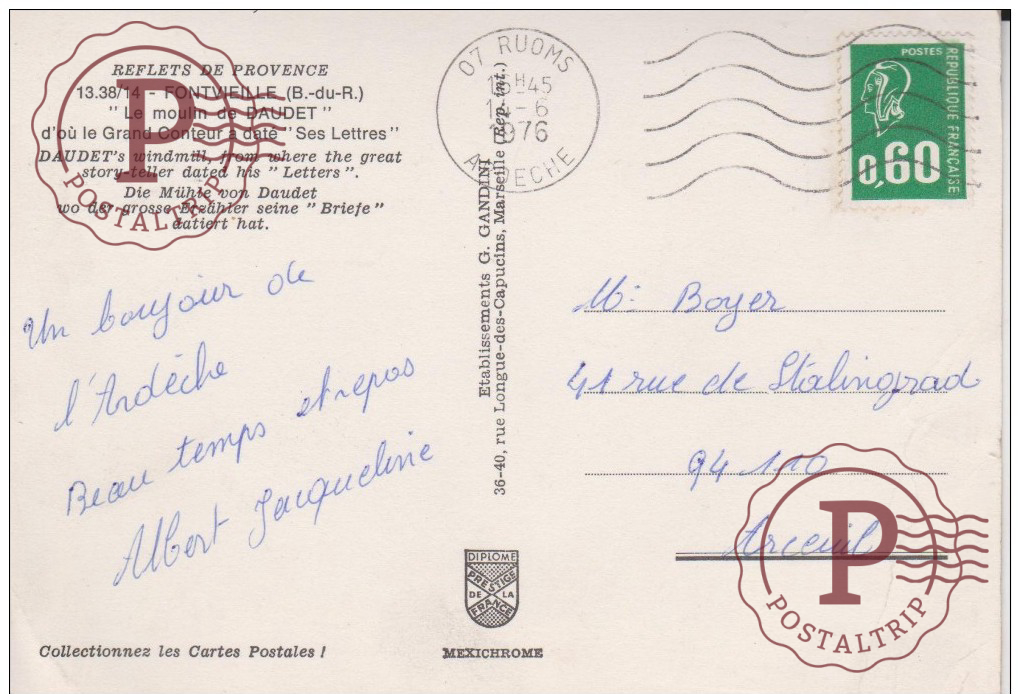 REFLETS DE PROVENCE
13.38/14 - FONTVIEILLE (B.-du-R.)
" Le moulin de DAUDET "
d'où le Grand Conteur a daté "Ses Lettres"
DAUDET's windmill, from where the great
story-teller dated his " Letters ".
Die Mühle von Daudet
wo der grosse Erzähler seine " Briefe "
datiert hat.
P
POSTALTRIP
Un bonjour de
l'Ardèche
Beau temps et repos
Albert Jacqueline
Collectionnez les Cartes Postales !
Etablissements G. GANDINI
36-40, rue Longue-des-Capucins, Marseille (Rep. int.)
DIPLOME
PRESTIGE
DE LA
FRANCE
MEXICHROME
07 RUOMS
45
1976
ARDECHE
POSTES
REPUBLIQUE FRANÇAISE
0,60
Mr Boyer
41 rue de Stalingrad
94 110
Arcueil
P
POSTALTRIP